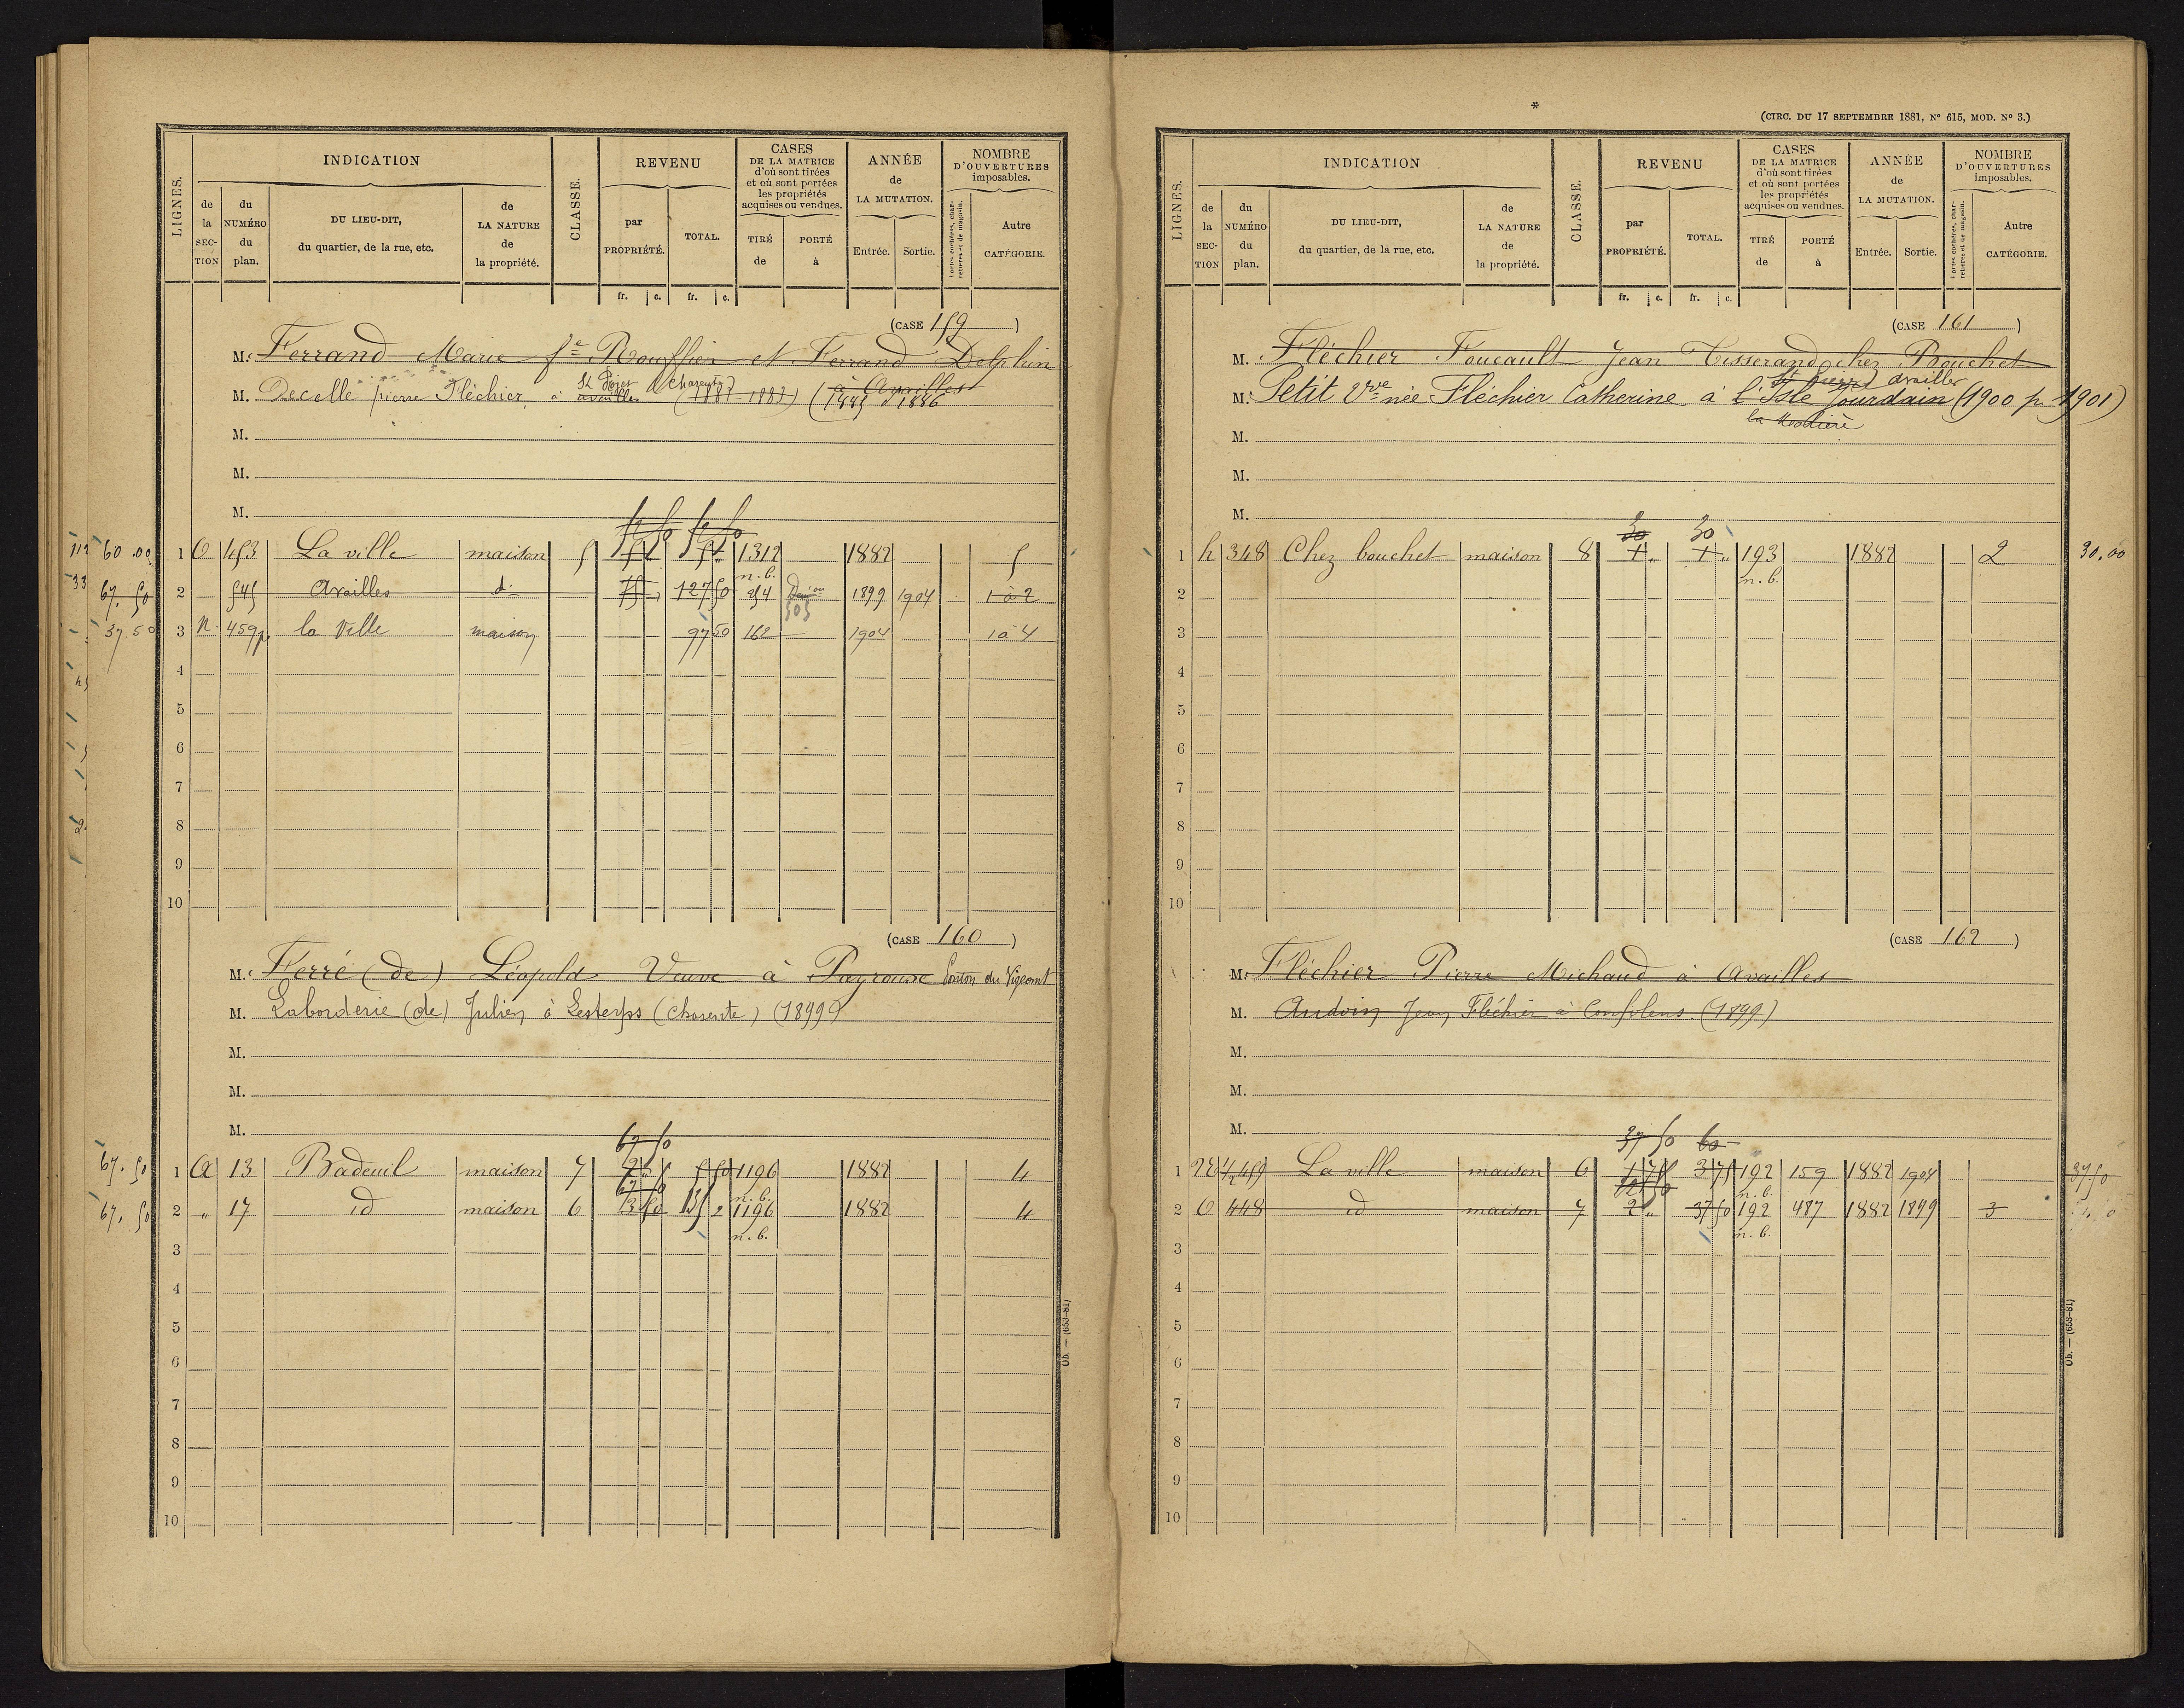 LIGNES.
INDICATION
CLASSE.
REVENU
CASES
DE LA MATRICE
d'où sont tirées
et où sont portées
les propriétés
acquises ou vendues.
ANNÉE
de
LA MUTATION.
NOMBRE
D'OUVERTURES
imposables.
de
la
SEC-
TION
du
NUMÉRO
du
plan.
DU LIEU-DIT,
du quartier, de la rue, etc.
de
LA NATURE
de
la propriété.
par
PROPRIÉTÉ.
TOTAL.
TIRÉ
de
PORTÉ
à
Entrée.
Sortie.
Portes cochères, char-
retières et de magasin.
Autre
CATÉGORIE.
fr. c. fr. c.
(CASE 159)
M. Ferrand Marie et Ferrand Delphin
M. Decelle pierre Fléchier, à availles (Charente) (1881-1882) (à Availles 1885 p 1886
M.
M.
M.
60.00 1 O 453 La ville maison 5 1312 1882 5
n.b.
67.50 2 545 Availles d° 75 127 50 254 1899 1904 1 à 2
505
37.50 3 n 459p la Ville maison 97 50 162 1904 1 à 4
4
5
6
7
8
9
10
(CASE 160)
M. Ferré (de) Léopold Veuve à Payrousse Canton du Vigeant
M. Laborderie (de) Julien à Lesterps (Charente) (1899)
M.
M.
M.
67 50
67.50 1 A 13 Badeuil maison 7 5 50 1196 1882 4
67 50 n.b.
67.50 2 " 17 id maison 6 3 50 135 2 1196 1882 4
n.b.
3
4
5
6
7
8
9
10
Ob. — (653-81)
*
(CIRC. DU 17 SEPTEMBRE 1881, N° 615, MOD. N° 3.)
LIGNES.
INDICATION
CLASSE.
REVENU
CASES
DE LA MATRICE
d'où sont tirées
et où sont portées
les propriétés
acquises ou vendues.
ANNÉE
de
LA MUTATION.
NOMBRE
D'OUVERTURES
imposables.
de
la
SEC-
TION
du
NUMÉRO
du
plan.
DU LIEU-DIT,
du quartier, de la rue, etc.
de
LA NATURE
de
la propriété.
par
PROPRIÉTÉ.
TOTAL.
TIRÉ
de
PORTÉ
à
Entrée.
Sortie.
Portes cochères, char-
retières et de magasin.
Autre
CATÉGORIE.
fr. c. fr. c.
(CASE 161)
M. Fléchier Foucault Jean Tisserand chez Bouchet
St pierre availles
M. Petit Vve née Fléchier Catherine à l'Isle Jourdain (1900 p 1901)
M.
M.
M.
30 30
1 h 348 Chez bouchet maison 8 1 " 1 " 193 1882 2 30.00
n.b.
2
3
4
5
6
7
8
9
10
(CASE 162)
M. Fléchier Pierre Michaud à Availles
M. Audoin Jean Fléchier à Confolens (1899)
M.
M.
M.
37 50 60
1 459 La ville maison 6 1 75 3 75 192 159 1882 1904 37.50
n.b.
2 O 448 id maison 7 2 " 37 50 192 487 1882 1899 3
n.b.
3
4
5
6
7
8
9
10
Ob. — (653-81)